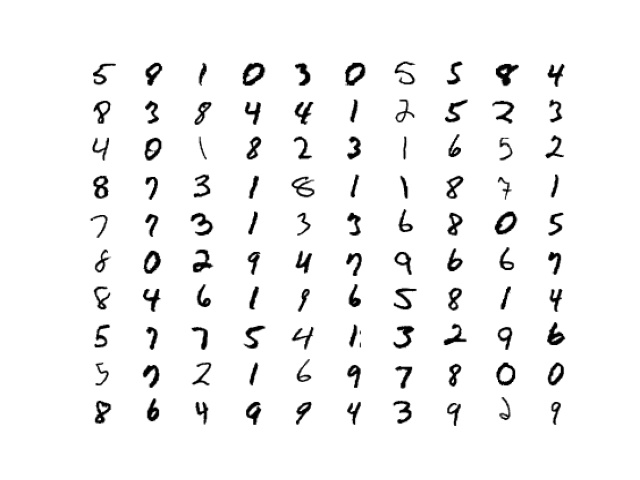 5 9 1 0 3 0 5 5 8 4
8 3 8 4 4 1 2 5 2 3
4 0 1 8 2 3 1 6 5 2
8 7 3 1 8 1 1 8 7 1
7 7 3 1 3 3 6 8 0 5
8 0 2 9 4 7 9 6 6 7
8 4 6 1 9 6 5 8 1 4
5 7 7 5 4 1 3 2 9 6
5 7 2 1 6 9 7 8 0 0
8 6 4 9 9 4 3 9 2 9